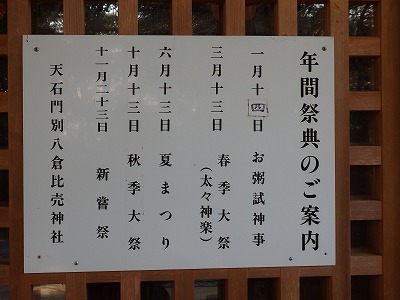 年間祭典のご案内
一月十四日 お粥試神事
三月十三日 春季大祭
(太々神楽)
六月十三日 夏まつり
十月十三日 秋季大祭
十一月二十三日 新嘗祭
天石門別八倉比売神社